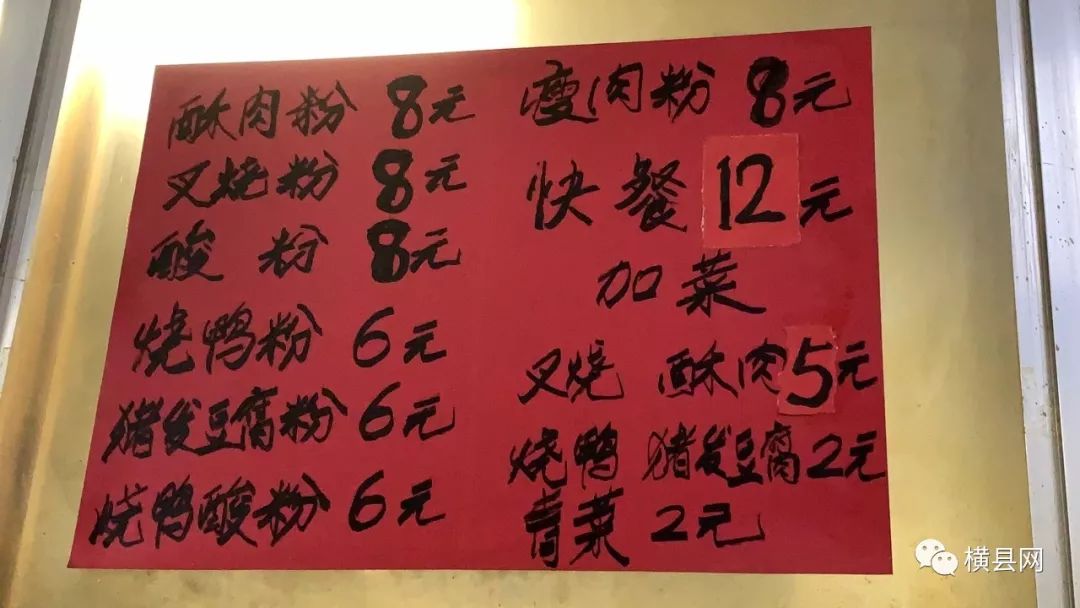 酥肉粉 8元
叉烧粉 8元
酸粉 8元
烧鸭粉 6元
猪发豆腐粉 6元
烧鸭酸粉 6元
瘦肉粉 8元
快餐 12元
加菜
叉烧 酥肉5元
烧鸭 猪发豆腐2元
青菜 2元
横县网